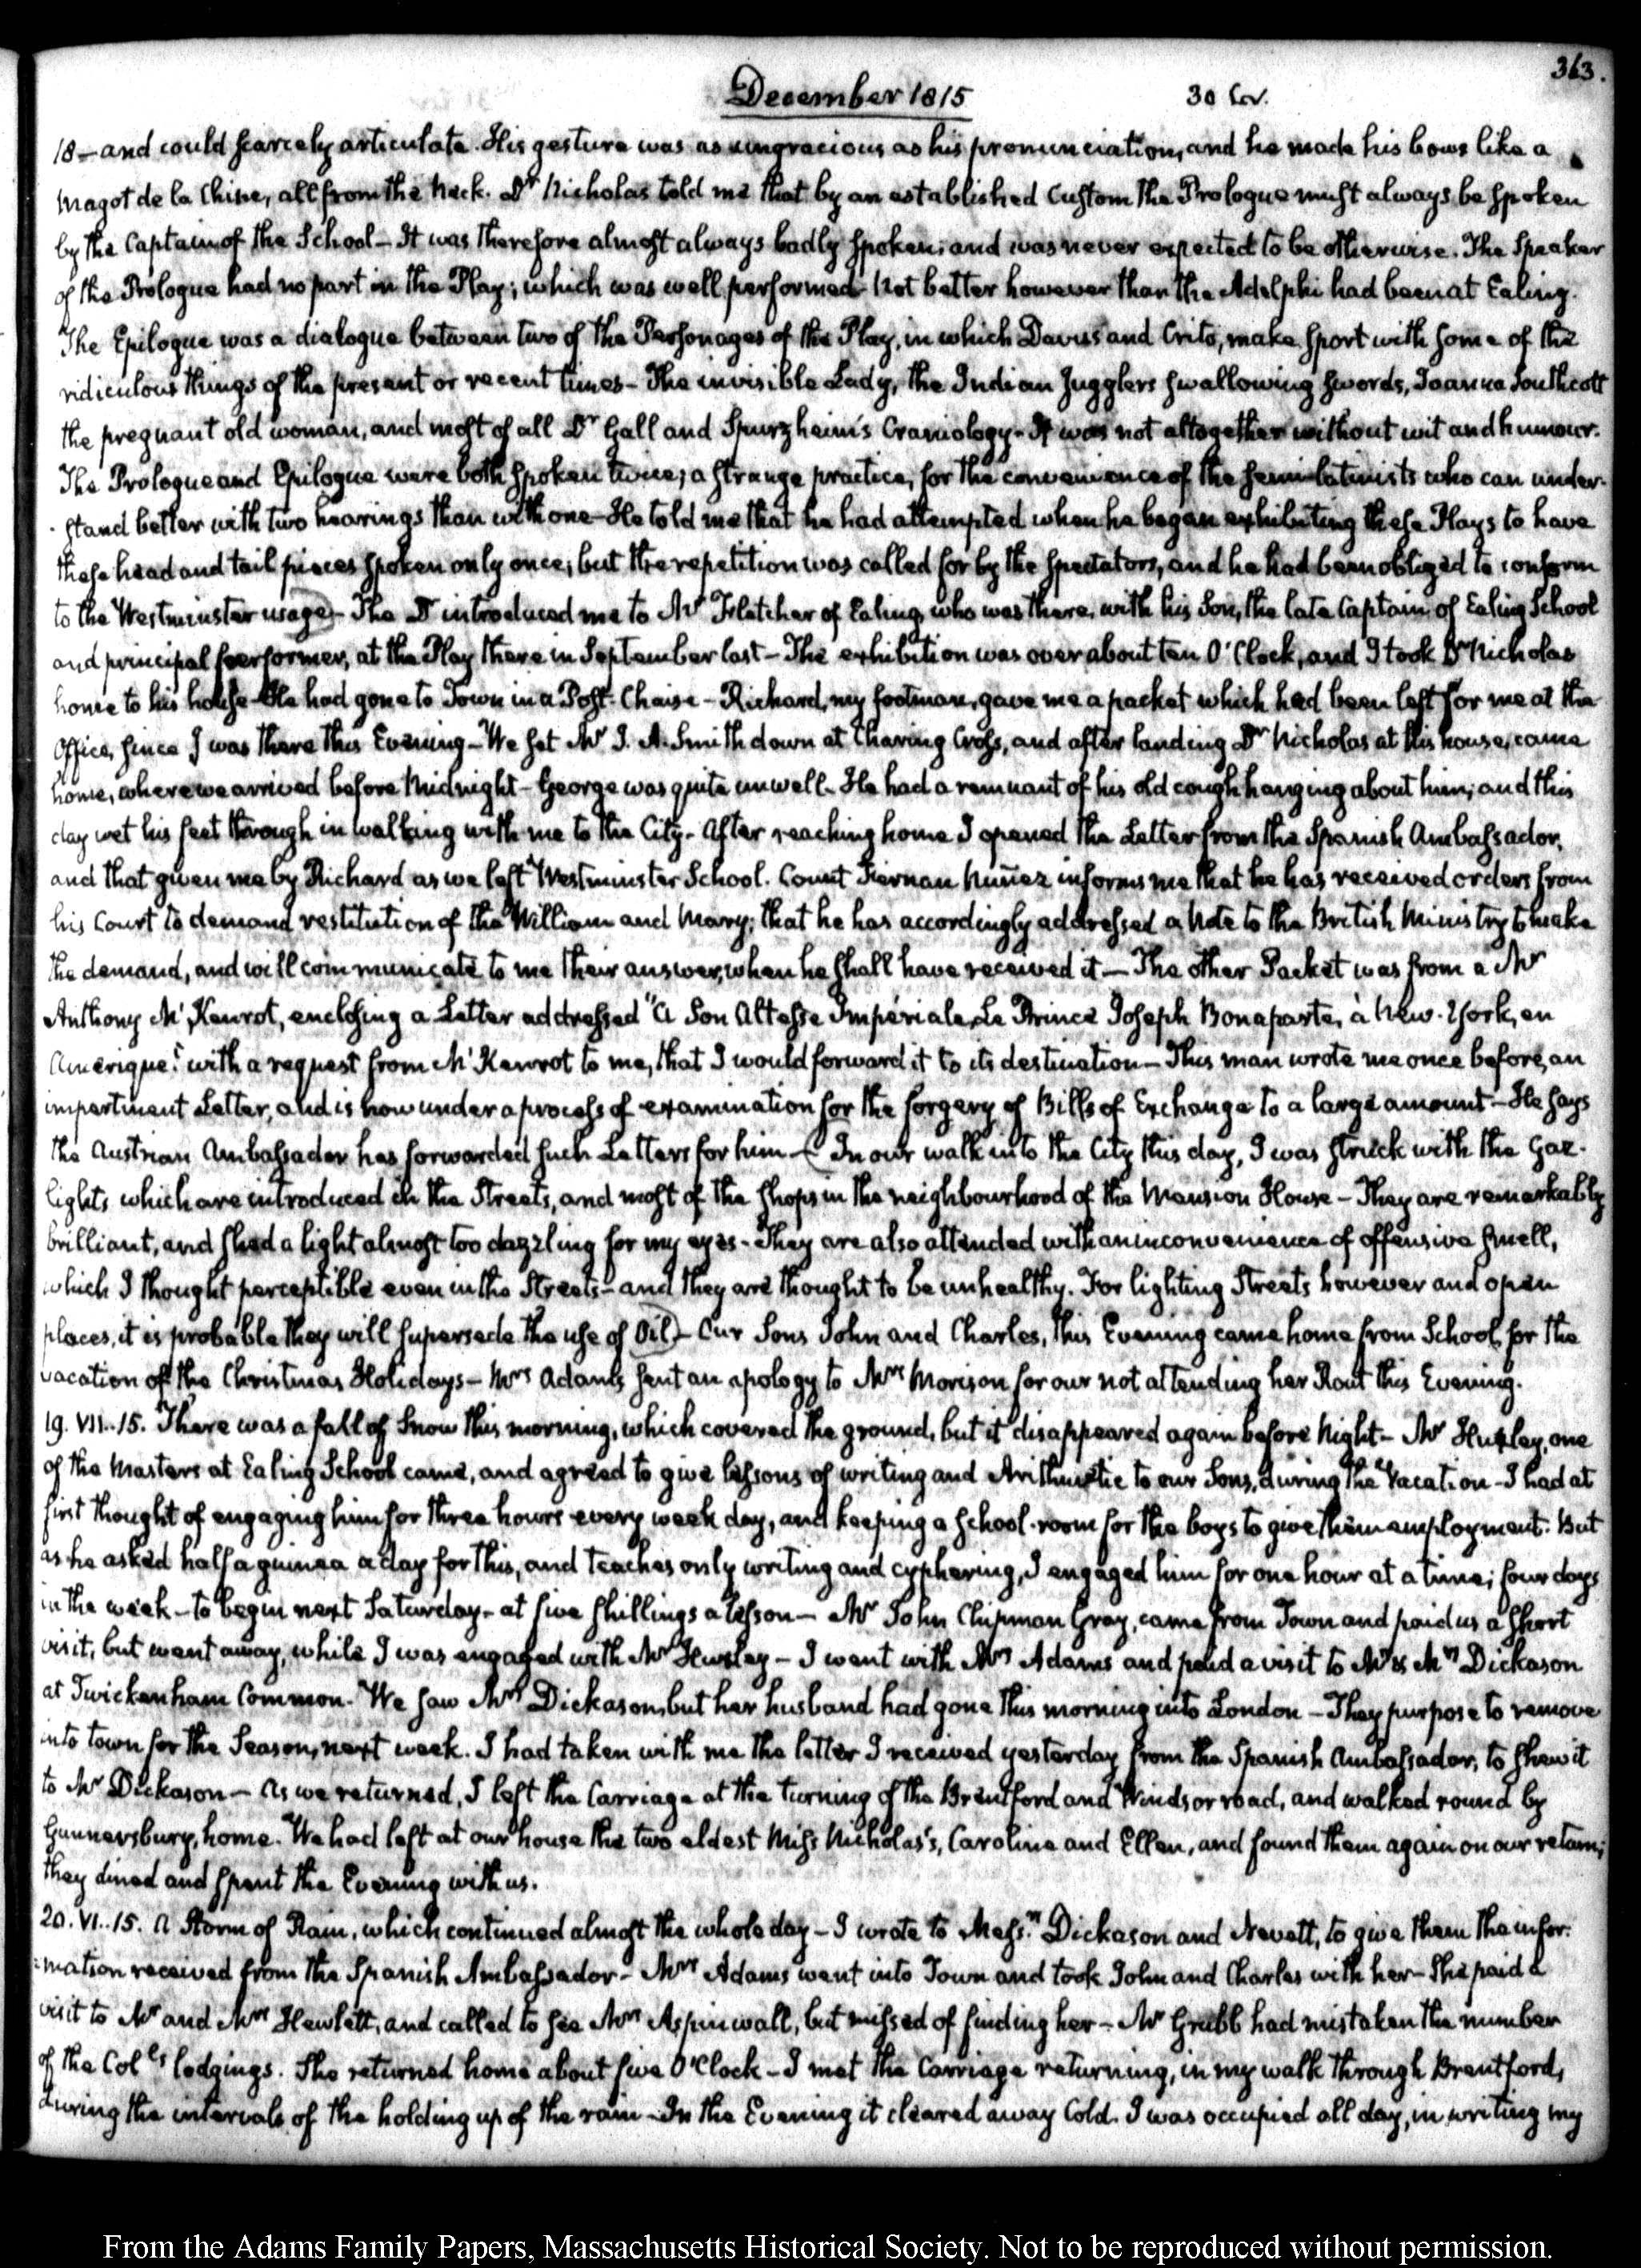 363.
December 1815
30 Cov.
18 – and could scarcely articulate. His gesture was as ungracious as his pronunciation, and he made his bows like a
magot de la Chine, all from the neck. Dr Nicholas told me that by an established Custom the Prologue must always be spoken
by the Captain of the School – It was therefore almost always badly spoken; and was never expected to be otherwise. The Speaker
of the Prologue had no part in the Play; which was well performed – Not better however than the Adelphi had been at Ealing.
The Epilogue was a dialogue between two of the Personages of the Play, in which Davus and Crito, make sport with some of the
ridiculous things of the present or recent times – The invisible Lady, the Indian Jugglers swallowing swords, Joanna Southcott
the pregnant old woman, and most of all Dr Gall and Spurzheim's Craniology – It was not altogether without wit and humour.
The Prologue and Epilogue were both spoken twice; a strange practice, for the convenience of the semi-latinists who can under-
-stand better with two hearings than with one – He told me that he had attempted when he began exhibiting these Plays to have
these head and tail pieces spoken only once; but the repetition was called for by the Spectators, and he had been obliged to conform
to the Westminster usage – The Dr introduced me to Mr Fletcher of Ealing, who was there, with his Son, the late Captain of Ealing School
and principal performer, at the Play there in September last – The exhibition was over about ten O'Clock, and I took Dr Nicholas
home to his house – He had gone to Town in a Post-Chaise – Richard, my footman, gave me a packet which had been left for me at the
Office, since I was there this Evening – We set Mr J. A. Smith down at Charing Cross, and after landing Dr Nicholas at his house, came
home, where we arrived before Midnight – George was quite unwell – He had a remnant of his old cough hanging about him; and this
day wet his feet through in walking with me to the City – After reaching home I opened the Letter from the Spanish Ambassador,
and that given me by Richard as we left Westminster School. Count Fernan Nuñez informs me that he has received orders from
his Court to demand restitution of the William and Mary; that he has accordingly addressed a Note to the British Ministry to make
the demand, and will communicate to me their answer, when he shall have received it – The other Packet was from a Mr
Anthony McKenrot, enclosing a Letter addressed "A Son Altesse Impériale, Le Prince Joseph Bonaparte, à New-York, en
Amérique." with a request from McKenrot to me, that I would forward it to its destination – This man wrote me once before, an
impertinent Letter, and is now under a process of examination for the forgery of Bills of Exchange to a large amount – He says
the Austrian Ambassador has forwarded such Letters for him – (In our walk into the City this day, I was struck with the Gaz-
lights which are introduced in the Streets, and most of the shops in the neighbourhood of the Mansion House – They are remarkably
brilliant, and shed a light almost too dazzling for my eyes – They are also attended with an inconvenience of offensive smell,
which I thought perceptible even in the Streets – and they are thought to be unhealthy. For lighting Streets however and open
places, it is probable they will supersede the use of Oil) – Our Sons John and Charles, this Evening came home from School, for the
vacation of the Christmas Holidays – Mrs Adams sent an apology to Mrs Morison for our not attending her Rout this Evening.
19. VII..15. There was a fall of Snow this morning, which covered the ground, but it disappeared again before Night – Mr Huxley, one
of the Masters at Ealing School came, and agreed to give lessons of writing and Arithmetic to our Sons, during the Vacation – I had at
first thought of engaging him for three hours every week day, and keeping a school-room for the boys to give them employment. But
as he asked half a guinea a day for this, and teaches only writing and cyphering, I engaged him for one hour at a time; four days
in the week – to begin next Saturday – at five shillings a lesson – Mr John Chipman Gray, came from Town and paid us a short
visit, but went away, while I was engaged with Mr Huxley – I went with Mrs Adams and paid a visit to Mr & Mrs Dickason
at Twickenham Common. We saw Mrs Dickason, but her husband had gone this morning into London – They purpose to remove
into town for the Season, next week. I had taken with me the letter I received yesterday from the Spanish Ambassador, to shew it
to Mr Dickason – As we returned, I left the Carriage at the turning of the Brentford and Windsor road, and walked round by
Gunnersbury, home. We had left at our house the two eldest Miss Nicholas's, Caroline and Ellen, and found them again on our return;
they dined and spent the Evening with us.
20. VI..15. A Storm of Rain, which continued almost the whole day – I wrote to Messrs Dickason and Nevett, to give them the infor-
-mation received from the Spanish Ambassador – Mrs Adams went into Town and took John and Charles with her – She paid a
visit to Mr and Mrs Hewlett, and called to see Mrs Aspinwall, but missed of finding her – Mr Grubb had mistaken the number
of the Colls lodgings. She returned home about five O'Clock – I met the Carriage returning, in my walk through Brentford,
during the intervals of the holding up of the rain – In the Evening it cleared away Cold. I was occupied all day, in writing my
From the Adams Family Papers, Massachusetts Historical Society. Not to be reproduced without permission.